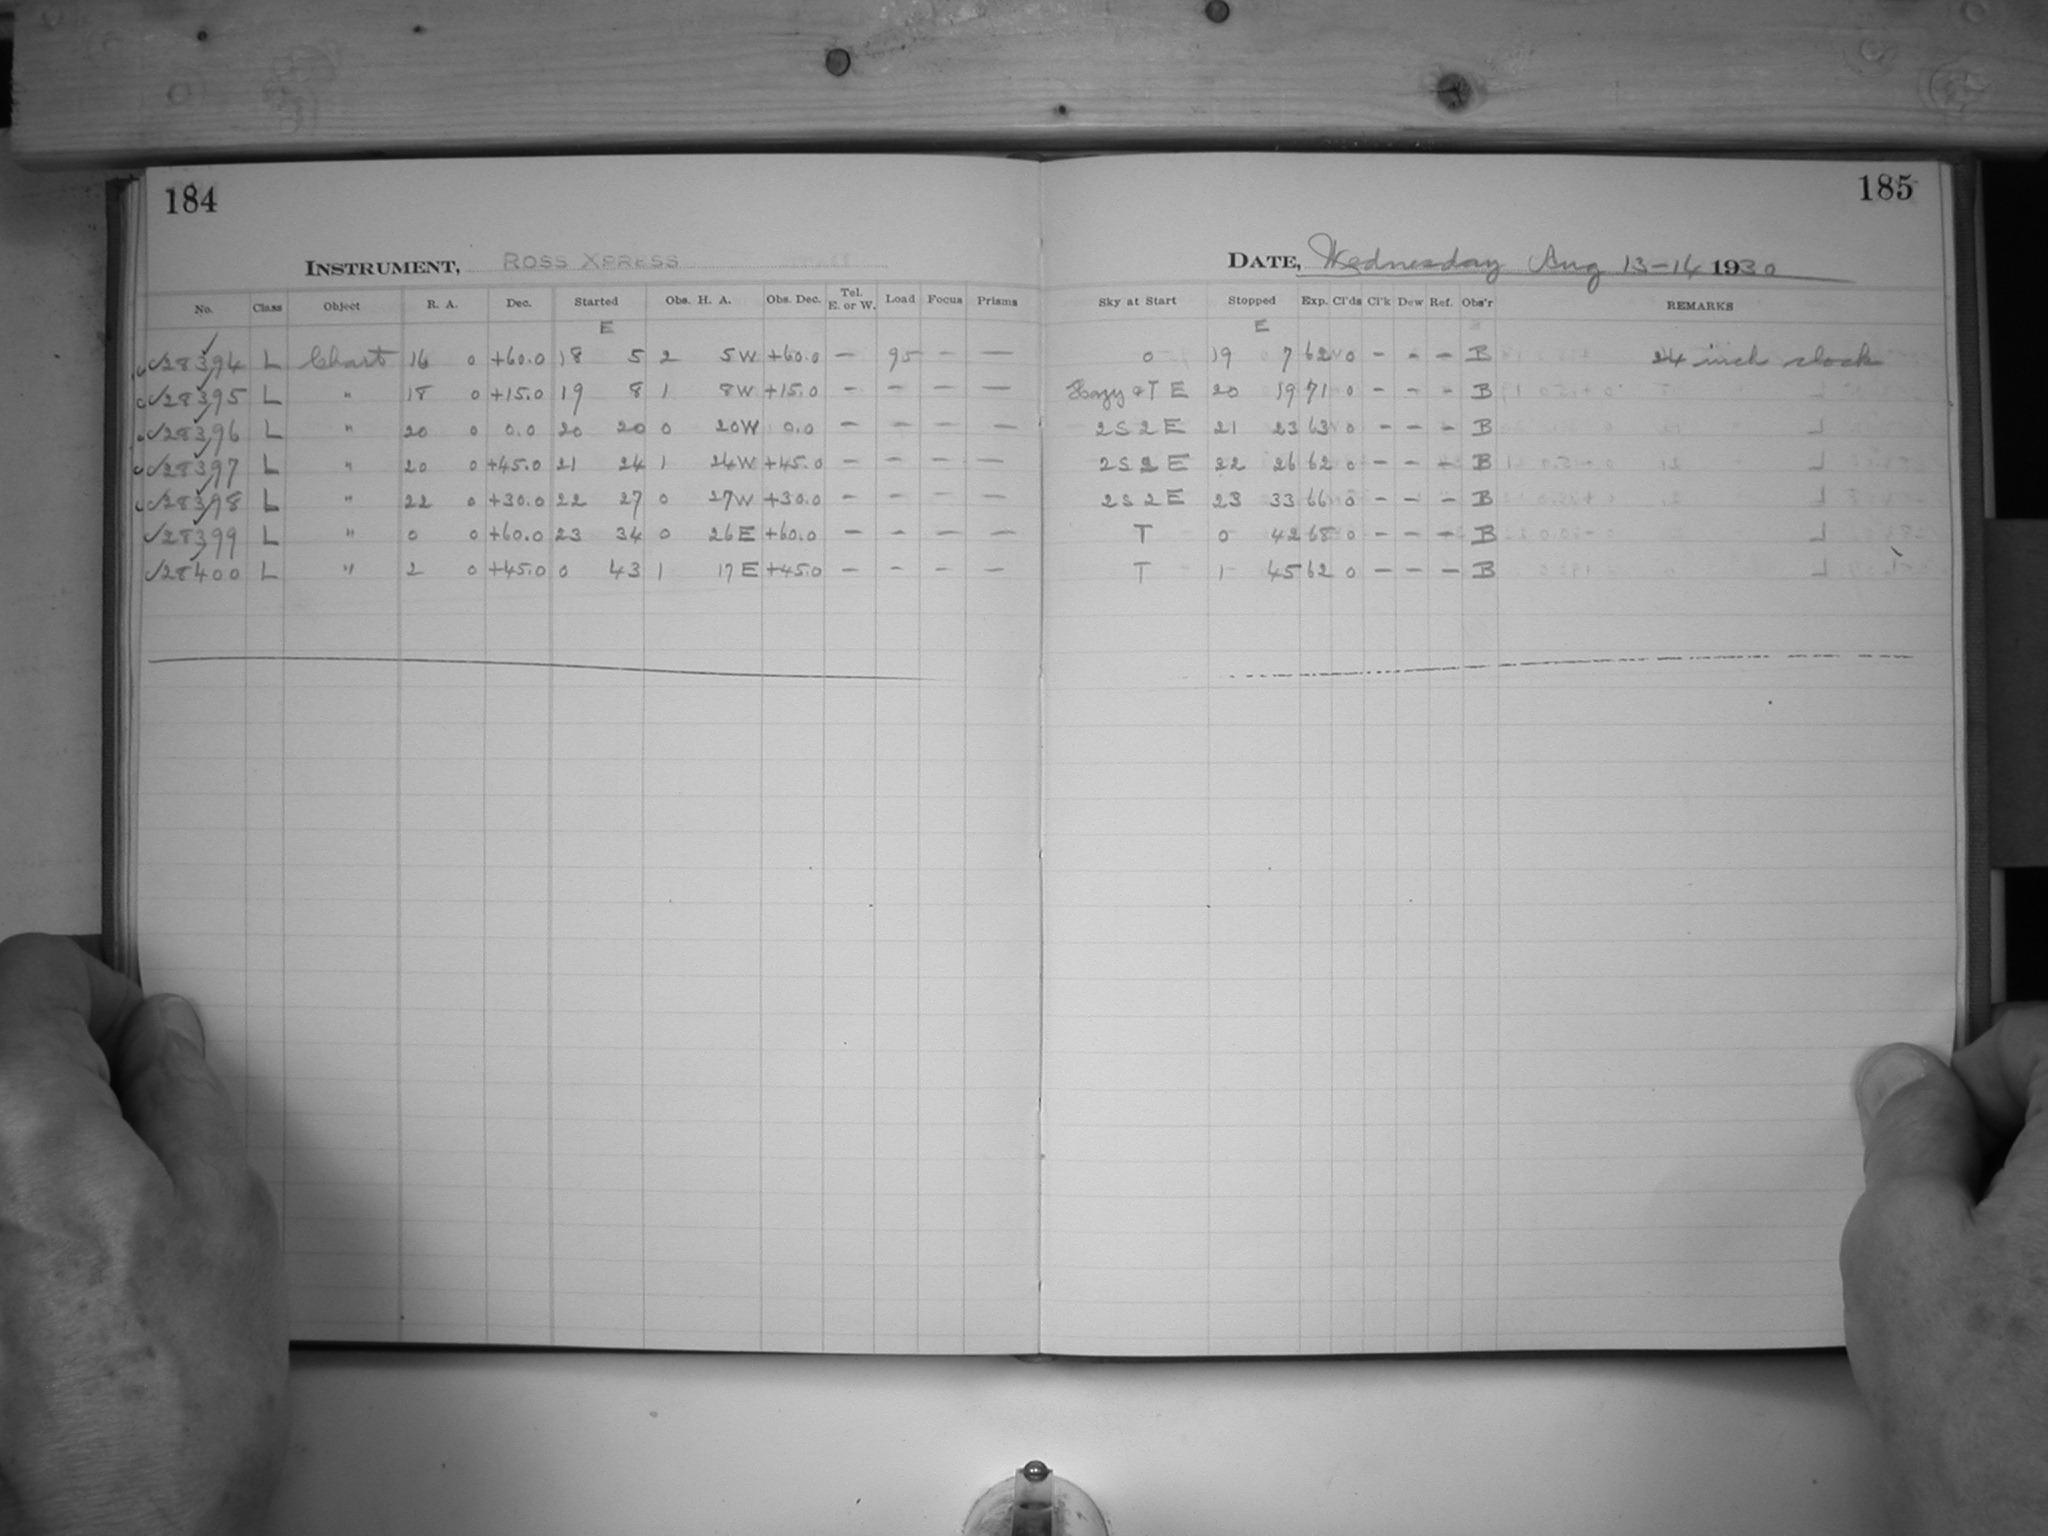 184
INSTRUMENT, ROSS XPRESS
No. Class Object R. A. Dec. Started Obs. H. A. Obs. Dec. Tel. E. or W. Load Focus Prisms
E
✓28394 L Chart 16 0 +60.0 18 5 2 5W +60.0 – 95 – –
✓28395 L " 18 0 +15.0 19 8 1 8W +15.0 – – – –
✓28396 L " 20 0 0.0 20 20 0 20W 0.0 – – – –
✓28397 L " 20 0 +45.0 21 24 1 24W +45.0 – – – –
✓28398 L " 22 0 +30.0 22 27 0 27W +30.0 – – – –
✓28399 L " 0 0 +60.0 23 34 0 26E +60.0 – – – –
✓28400 L " 2 0 +45.0 0 43 1 17E +45.0 – – – –
185
DATE, Wednesday Aug 13-14 1930
Sky at Start Stopped Exp. Cl'ds Cl'k Dew Ref. Obs'r REMARKS
E
0 19 7 62 0 – – – B 24 inch clock
Hazy & T E 20 19 71 0 – – – B
2 S 2 E 21 23 63 0 – – – B
2 S 2 E 22 26 62 0 – – – B
2 S 2 E 23 33 66 0 – – – B
T 0 42 68 0 – – – B
T 1 45 62 0 – – – B